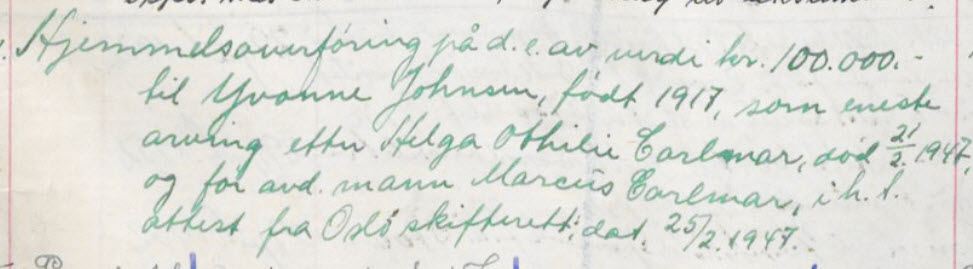 Hjemmelsoverföring på d.e. av verdi kr. 100.000.-
til Yvonne Johnsen, født 1917, som eneste
arving etter Helga Othilie Carlmar, död 21/2. 1947,
og for avd. mann Marcus Carlmar, i h.t.
attest fra Oslo skifterett, dat. 25/2.1947.